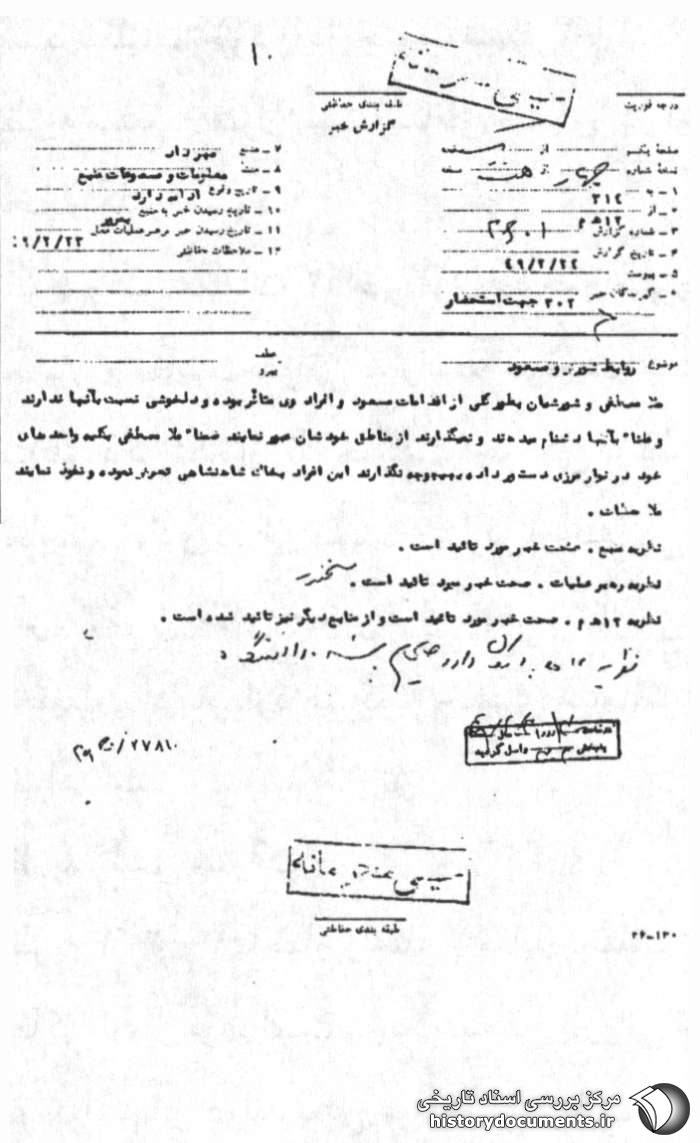 ۱۰
خیلی محرمانه
درجه فوریت
طبقه بندی حفاظتی
گزارش خبر
صفحهٔ یکم از یک صفحه
نسخهٔ شماره چهار از هفت نسخه
۱ - به ۳۱۲
۲ - از ۱۲هـ م
۳ - شماره گزارش
۴ - تاریخ گزارش ۴۹/۲/۲۲
۵ - پیوست
۶ - گیرندگان خبر ۲۰۲ جهت استحضار
۷ - منبع مهرداد
۸ - منشاء معلومات و مسموعات منبع
۹ - تاریخ وقوع
۱۰ - تاریخ رسیدن خبر به منبع
۱۱ - تاریخ رسیدن خبر برهبر عملیات محل
۱۲ - ملاحظات حفاظتی
موضوع روابط شورش و مسعود
عطف
پیرو
ملا مصطفی و شورشیان بطور کلی از اقدامات مسعود و افراد وی متاثر بوده و دلخوشی نسبت بآنها ندارند
و علناً بآنها دشنام میدهند و نمیگذارند از مناطق خودشان عبور نمایند ضمناً ملا مصطفی بکلیه واحدهای
خود در نوار مرزی دستور داده بهیچوجه نگذارند این افراد بخاک شاهنشاهی تعرض نموده و نفوذ نمایند
ملاحظات .
نظریه منبع . صحت خبر مورد تائید است .
نظریه رهبر عملیات . صحت خبر مورد تائید است .
نظریه ۱۲هـ م . صحت خبر مورد تائید است و از منابع دیگر نیز تائید شده است .
۲۷۸۱۰
واصل گردید
خیلی محرمانه
طبقه بندی حفاظتی
۲۶-۱۳۰
مرکز بررسی اسناد تاریخی
historydocuments.ir